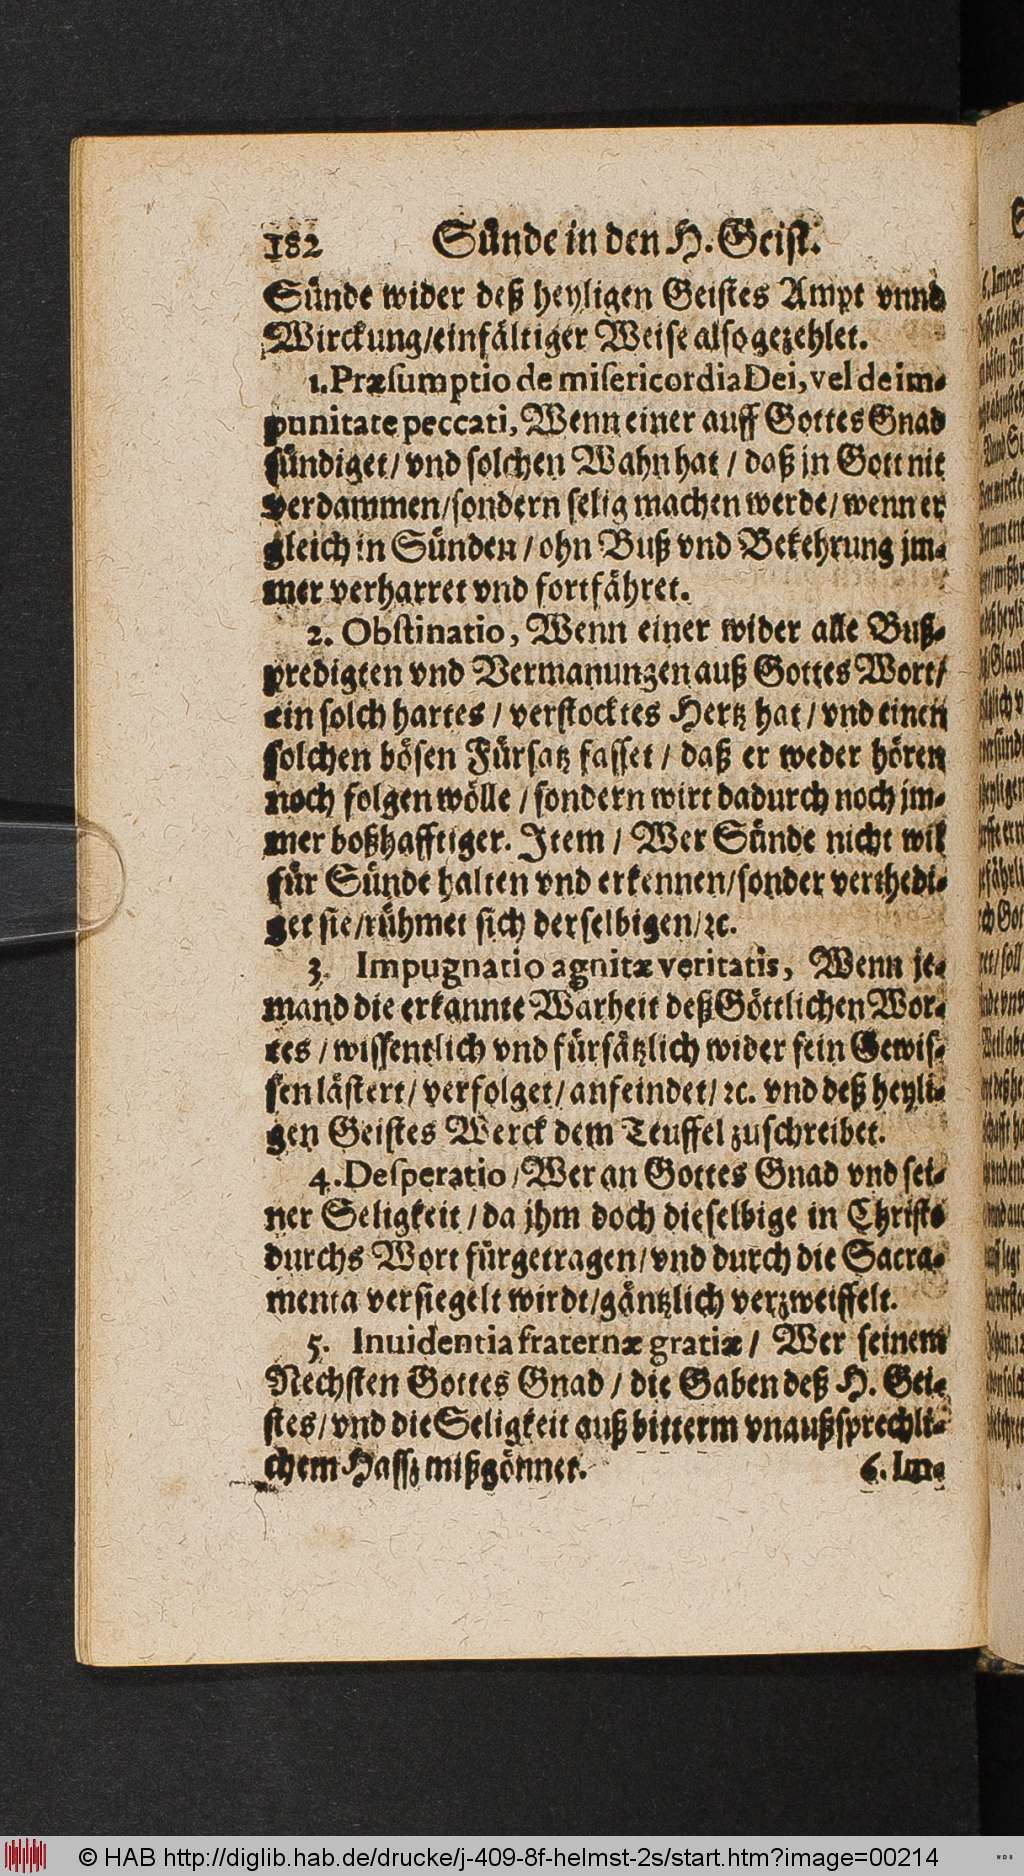 182 Sünde in den H. Geist.
Sünde wider deß heyligen Geistes Ampt vnnd
Wirckung/einfältiger Weise also gezehlet.
1. Præsumptio de misericordia Dei, vel de im-
punitate peccati, Wenn einer auff Gottes Gnad
sündiget/ vnd solchen Wahn hat / daß jn Gott nit
verdammen/sondern selig machen werde/ wenn er
gleich in Sünden / ohn Buß vnd Bekehrung jm-
mer verharret vnd fortfähret.
2. Obstinatio, Wenn einer wider alle Buß-
predigten vnd Vermanungen auß Gottes Wort/
ein solch hartes / verstocktes Hertz hat / vnd einen
solchen bösen Fürsatz fasset / daß er weder hören
noch folgen wölle / sondern wirt dadurch noch jm-
mer boßhafftiger. Item / Wer Sünde nicht wil
für Sünde halten vnd erkennen/sonder verthedi-
get sie/rühmet sich derselbigen/ꝛc.
3. Impugnatio agnitæ veritatis, Wenn je-
mand die erkannte Warheit deß Göttlichen Wor-
tes / wissentlich vnd fürsätzlich wider sein Gewis-
sen lästert/ verfolget/ anfeindet/ ꝛc. vnd deß heyli-
gen Geistes Werck dem Teuffel zuschreibet.
4. Desperatio / Wer an Gottes Gnad vnd sei-
ner Seligkeit / da jhm doch dieselbige in Christo
durchs Wort fürgetragen/ vnd durch die Sacra-
menta versiegelt wirdt/gäntzlich verzweiffelt.
5. Inuidentia fraternæ gratiæ / Wer seinem
Nechsten Gottes Gnad / die Gaben deß H. Gei-
stes/ vnd die Seligkeit auß bitterm vnaußsprechli-
chem Hassz mißgönnet.
6. Im-
© HAB http://diglib.hab.de/drucke/j-409-8f-helmst-2s/start.htm?image=00214